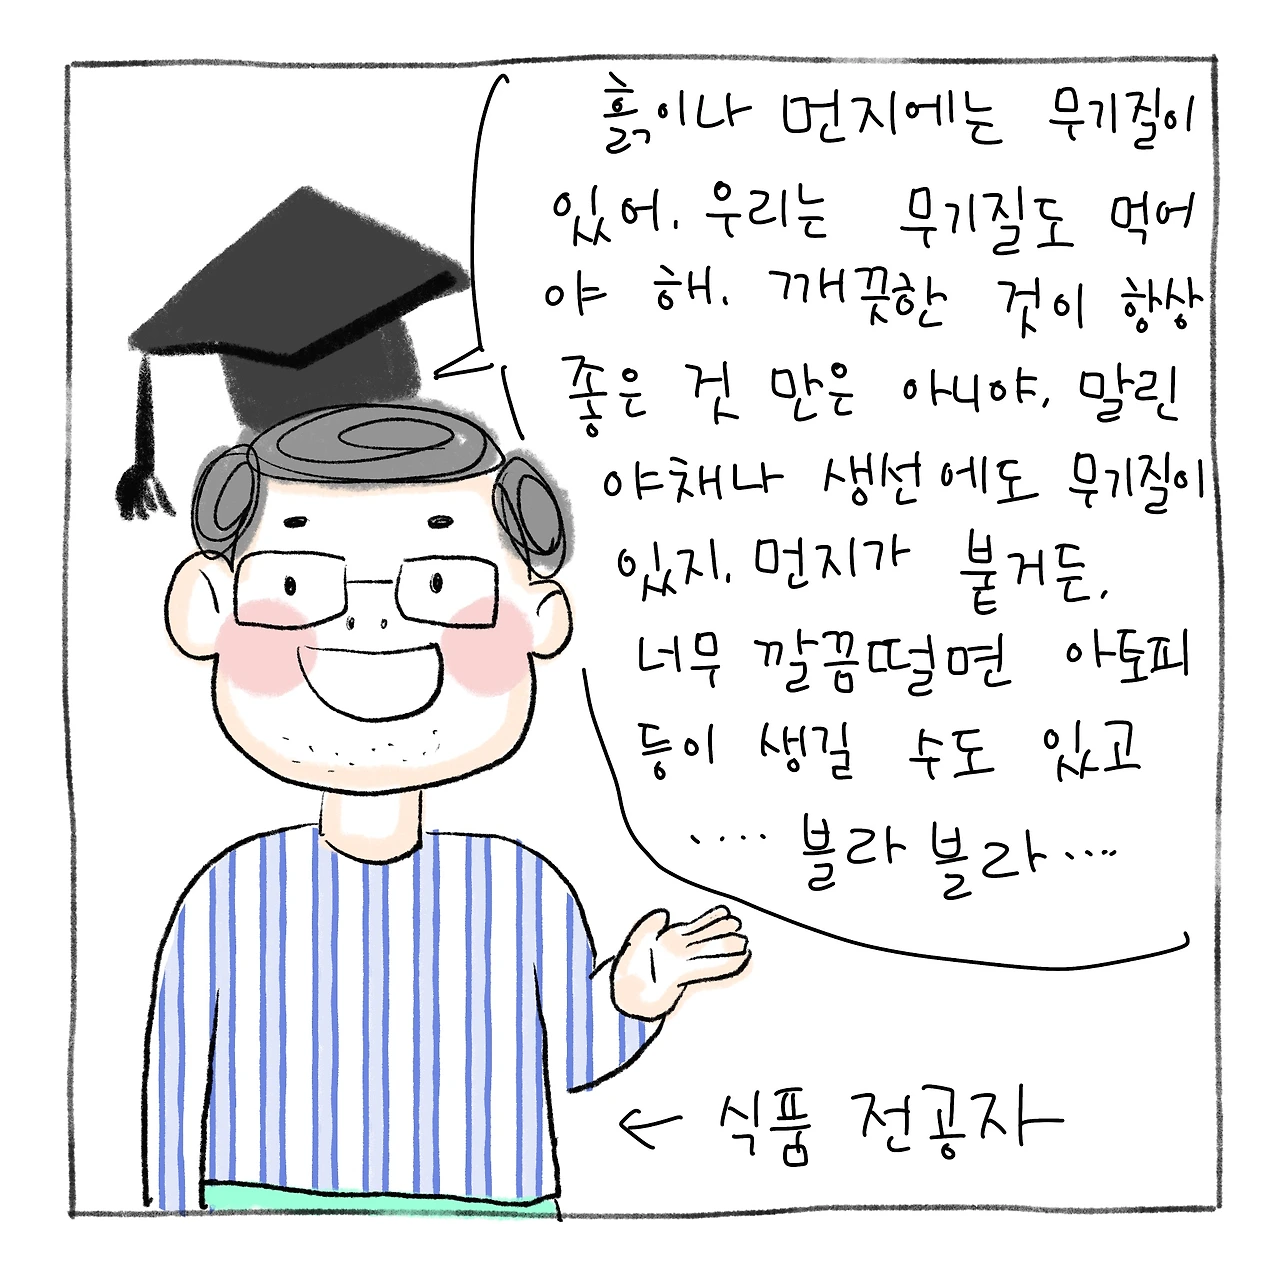 흙이나 먼지에는 무기질이
있어. 우리는 무기질도 먹어
야 해. 깨끗한 것이 항상
좋은 것 만은 아니야. 말린
야채나 생선에도 무기질이
있지. 먼지가 붙거든.
너무 깔끔떨면 아토피
등이 생길 수도 있고
.... 블라 블라 ....
← 식품 전공자